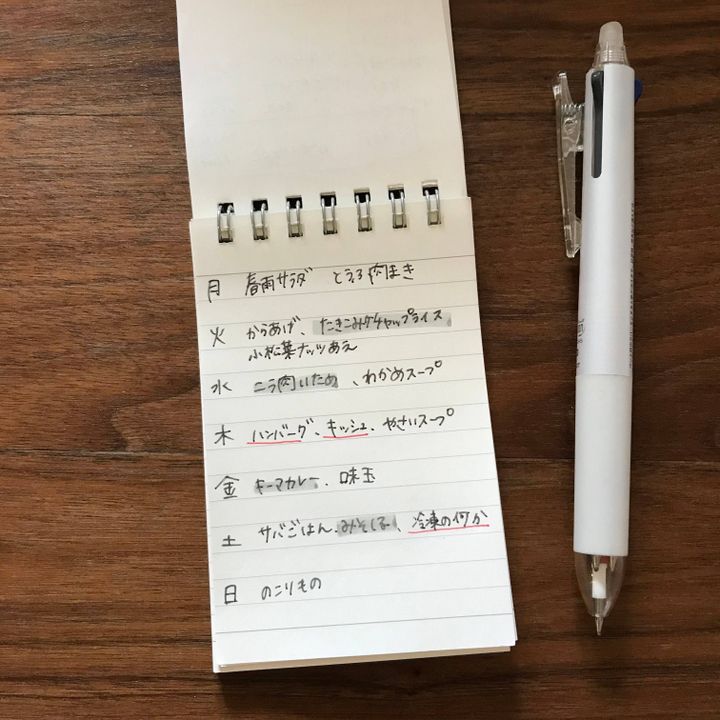 月 春雨サラダ とろろ肉まき
火 からあげ、たきこみケチャップライス
小松菜ナッツあえ
水 ニラ肉いため、わかめスープ
木 ハンバーグ、キッシュ、やさいスープ
金 キーマカレー、味玉
土 サバごはん、みそしる、冷凍の何か
日 のこりもの